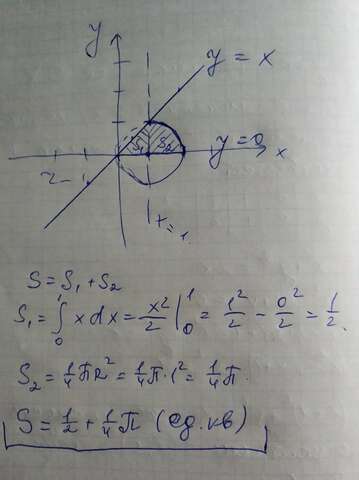 y
y = x
S₁ S₂
y = 0
x
x = 1
S = S₁ + S₂
S₁ = ∫₀¹ x dx = x²/2 |₀¹ = 1²/2 - 0²/2 = 1/2.
S₂ = 1/4 πR² = 1/4 π·1² = 1/4 π.
S = 1/2 + 1/4 π (ед. кв)